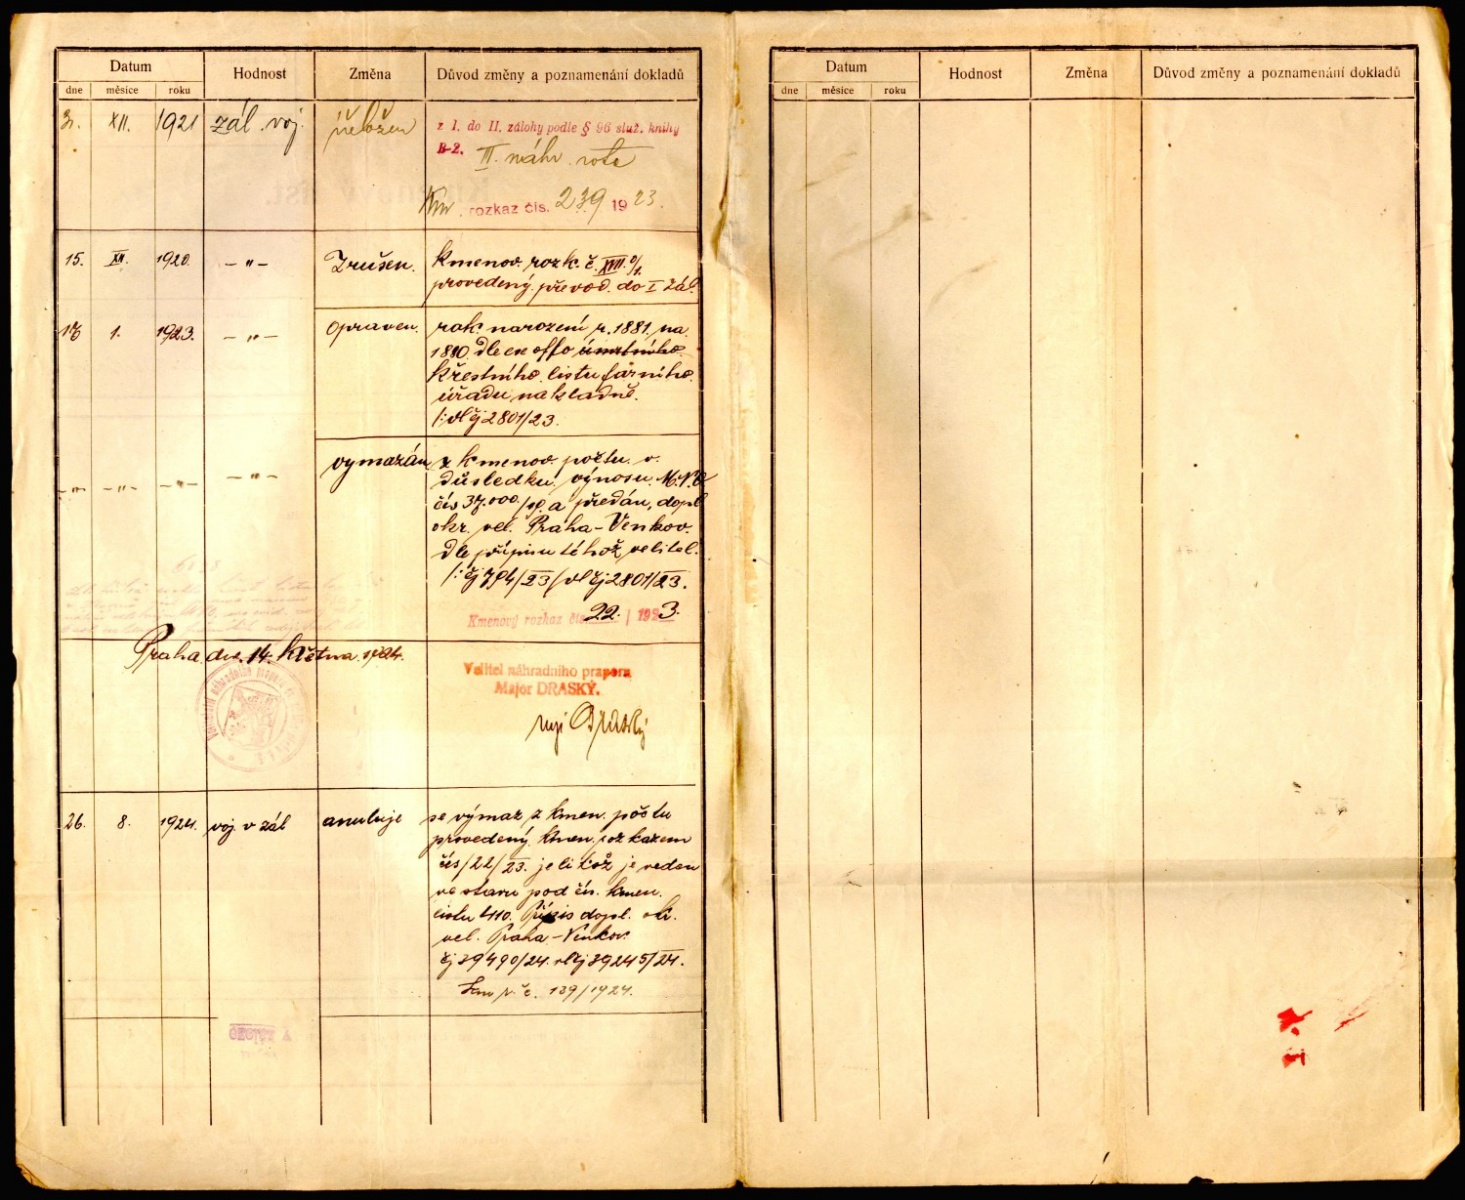 Datum Hodnost Změna Důvod změny a poznamenání dokladů
dne měsíce roku
31. XII. 1921 zál. voj. přeložen
z I. do II. zálohy podle § 96 služ. knihy
B-2. II. náhr. rota
Km. rozkaz čís. 239 1923.
15. XII. 1920. – " – Zrušen. Kmenov. rozk. č. XVII.
provedený převod. do I zál.
1. 1923. – " – opraven. rok. narození r. 1881. na
1880. dle ex offo
křestního listu farního
úřadu na Kladně.
/: vl čj 2801/23.
– " – – " – – " – – " – vymazán z kmenov. počtu. v.
důsledku. výnosu. M.N.O
čís 37.000/ a předán, dopl.
okr. vel. Praha – Venkov.
Dle přípisu téhož velitel.
/: čj 794/23 / vl čj 2801/23.
Kmenový rozkaz čís 22. | 1923.
Praha, dne 14. května 1924.
Velitel náhradního praporu
Major DRASKÝ.
mjr Draský
26. 8. 1924. voj. v zál anuluje se výmaz z kmen. počtu
provedený kmen. rozkazem
čís/22/23. jelikož je veden
ve stavu pod čís. kmen.
listu 4110. Přípis dopl. okr.
vel. Praha – Venkov.
čj 39490/24. vl čj 39245/24.
Km r. č. 139/1924.
Datum Hodnost Změna Důvod změny a poznamenání dokladů
dne měsíce roku